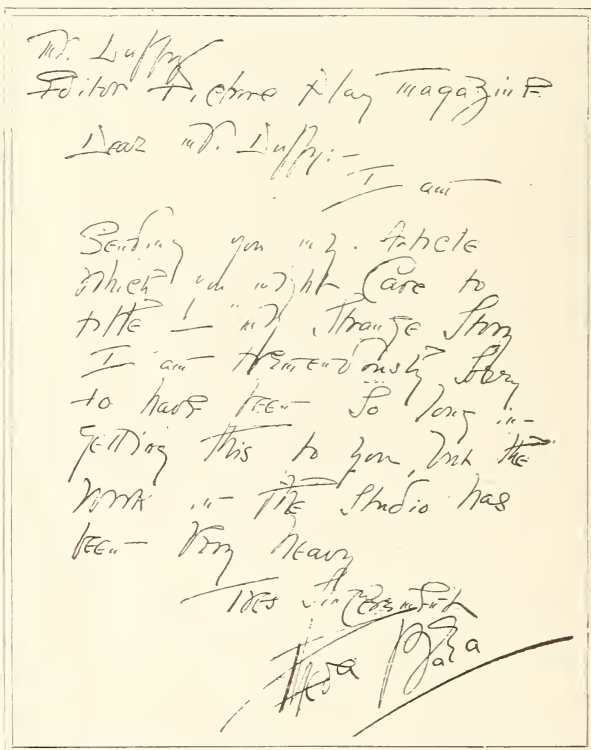 Mr. Duffy
Editor Picture Play Magazine
Dear Mr. Duffy:-
I am
Sending you my Article
Which you might Care to
title — "My Strange Story
I am tremendously Sorry
to have been So long in
getting this to you, but the
Work in the Studio has
been Very heavy
Tres Sincerement
Theda Bara